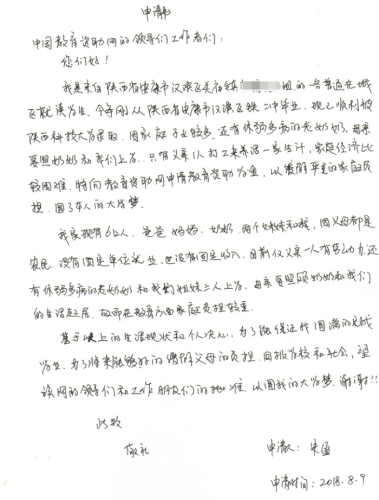 申请书
中国教育资助网的领导们工作者们：
您们好！
我是来自陕西省安康市汉滨区关庙镇 组的一名普通在城
区就读学生。今年刚从陕西省安康市汉滨区 二中毕业，现已顺利被
陕西科技大学录取。因家庭子女较多，还有体弱多病的老奶奶，母亲
要照顾奶奶和我们上学，只有父亲1人打工来养活一家生计，家庭经济比
较困难。特向教育资助网申请教育资助为盼，以缓解平重的家庭负
担，圆了本人的大学梦。
我家现有6口人，爸爸妈妈、奶奶、两个妹妹和我，因父母都是
农民，没有固定单位就业，也没有固定收入。目前仅父亲一人有劳动力，还
有体弱多病的老奶奶和我们姐妹三人上学，母亲要照顾奶奶和我们
的生活起居，故而在教育方面家庭负担较重。
基于以上的生活现状和个人决心，为了能保证我圆满的完成
学业，为了将来能够好的缓解父母的负担，回报学校和社会，望
该网的领导们和工作朋友们的批准，以圆我的大学梦。谢谢！！
此致
敬礼
申请人：朱
申请时间：2018.8.9